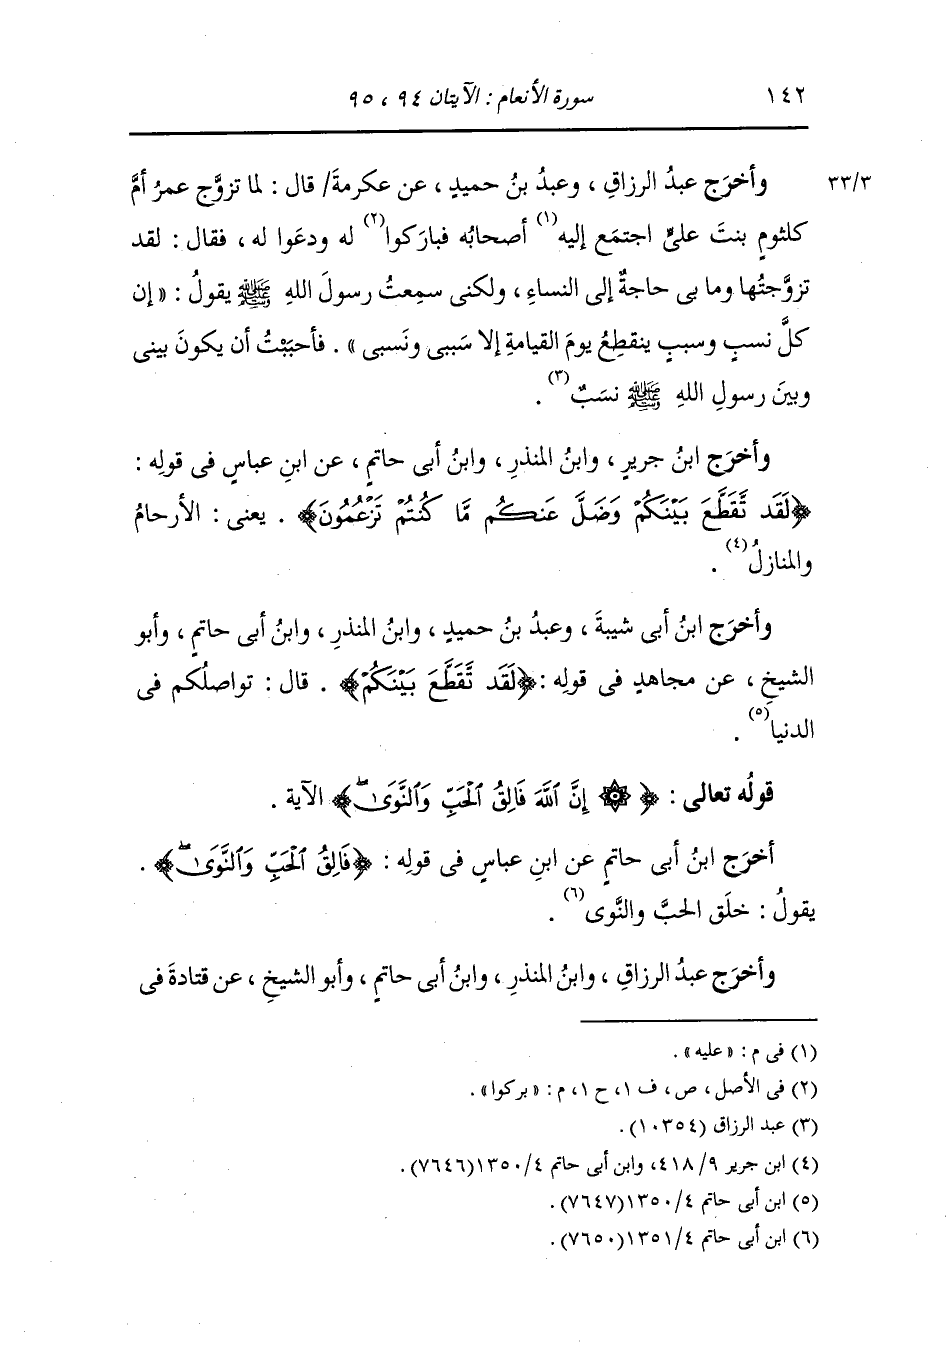 ١٤٢ سورة الأنعام : الآيتان ٩٤ ، ٩٥
٣٣/٣ وأخرَج عبدُ الرزاقِ ، وعبدُ بنُ حميدٍ ، عن عكرمةَ/ قال : لما تزوَّج عمرُ أمَّ
كلثومٍ بنتَ علىٍّ اجتمَع إليه(١) أصحابُه فبارَكوا(٢) له ودعَوا له ، فقال : لقد
تزوَّجتُها وما بى حاجةٌ إلى النساءِ ، ولكنى سمِعتُ رسولَ اللهِ ﷺ يقولُ : « إن
كلَّ نسبٍ وسببٍ ينقطِعُ يومَ القيامةِ إلا سَببى ونَسبى » . فأحبَبْتُ أن يكونَ بينى
وبينَ رسولِ اللهِ ﷺ نسَبٌ(٣) .
وأخرَج ابنُ جريرٍ ، وابنُ المنذرِ ، وابنُ أبى حاتمٍ ، عن ابنِ عباسٍ فى قولِه :
﴿لَقَد تَّقَطَّعَ بَيْنَكُمْ وَضَلَّ عَنكُم مَّا كُنتُمْ تَزْعُمُونَ﴾ . يعنى : الأرحامُ
والمنازلُ(٤) .
وأخرَج ابنُ أبى شيبةَ ، وعبدُ بنُ حميدٍ ، وابنُ المنذرِ ، وابنُ أبى حاتمٍ ، وأبو
الشيخِ ، عن مجاهدٍ فى قولِه : ﴿لَقَد تَّقَطَّعَ بَيْنَكُمْ﴾ . قال : تواصلُكم فى
الدنيا(٥) .
قولُه تعالى : ﴿ ۞ إِنَّ ٱللَّهَ فَالِقُ ٱلْحَبِّ وَٱلنَّوَىٰۖ﴾ الآية .
أخرَج ابنُ أبى حاتمٍ عن ابنِ عباسٍ فى قولِه : ﴿فَالِقُ ٱلْحَبِّ وَٱلنَّوَىٰۖ﴾ .
يقولُ : خلَق الحبَّ والنَّوى(٦) .
وأخرَج عبدُ الرزاقِ ، وابنُ المنذرِ ، وابنُ أبى حاتمٍ ، وأبو الشيخِ ، عن قتادةَ فى
(١) فى م : « عليه » .
(٢) فى الأصل ، ص ، ف ١ ، ح ١ ، م : « بركوا » .
(٣) عبد الرزاق (١٠٣٥٤) .
(٤) ابن جرير ٤١٨/٩، وابن أبى حاتم ١٣٥٠/٤(٧٦٤٦) .
(٥) ابن أبى حاتم ١٣٥٠/٤(٧٦٤٧) .
(٦) ابن أبى حاتم ١٣٥١/٤(٧٦٥٠) .